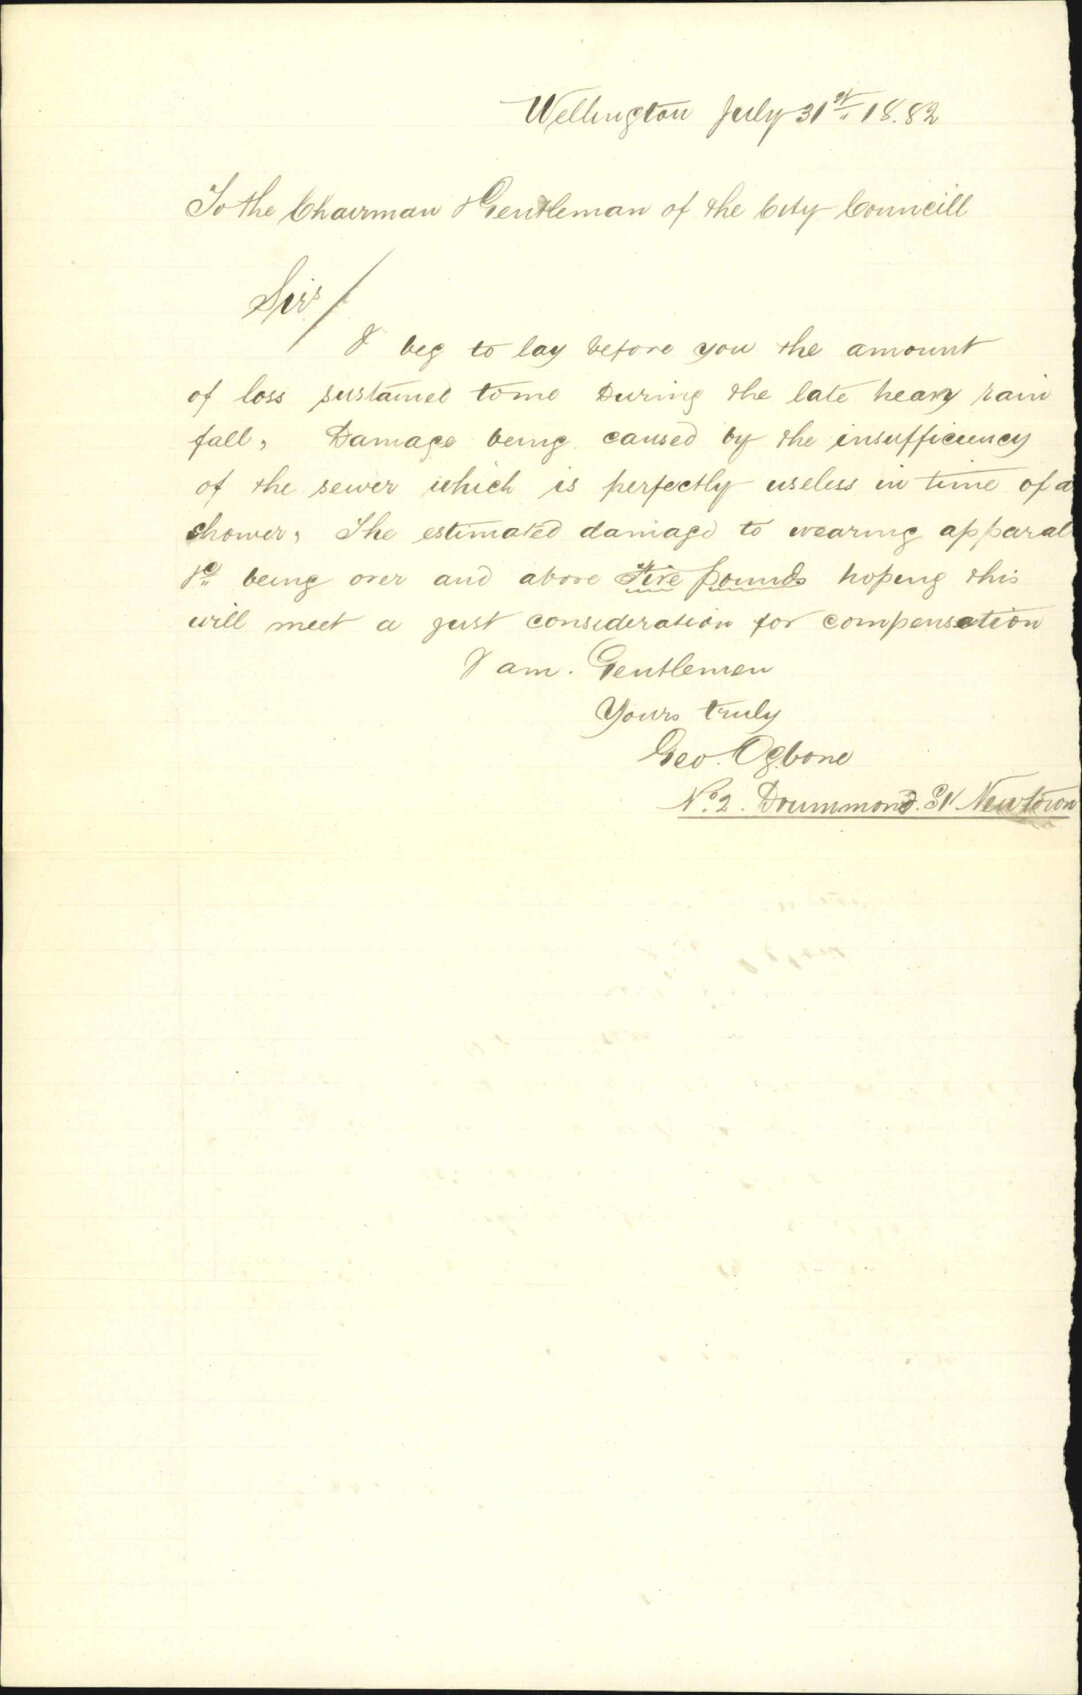 Wellington July 31st 18.82
To the Chairman & Gentleman of the City Councill
Sirs/
I beg to lay before you the amount
of loss sustained to me During the late heavy rain
fall, Damage being caused by the insufficiency
of the sewer which is perfectly useless in time of a
shower, The estimated damage to wearing apparal
&c being over and above Five pounds hoping this
will meet a just consideration for compensation
I am. Gentlemen
Yours truly
Geo. Ogbone
No. 2. Drummond. St Newtown